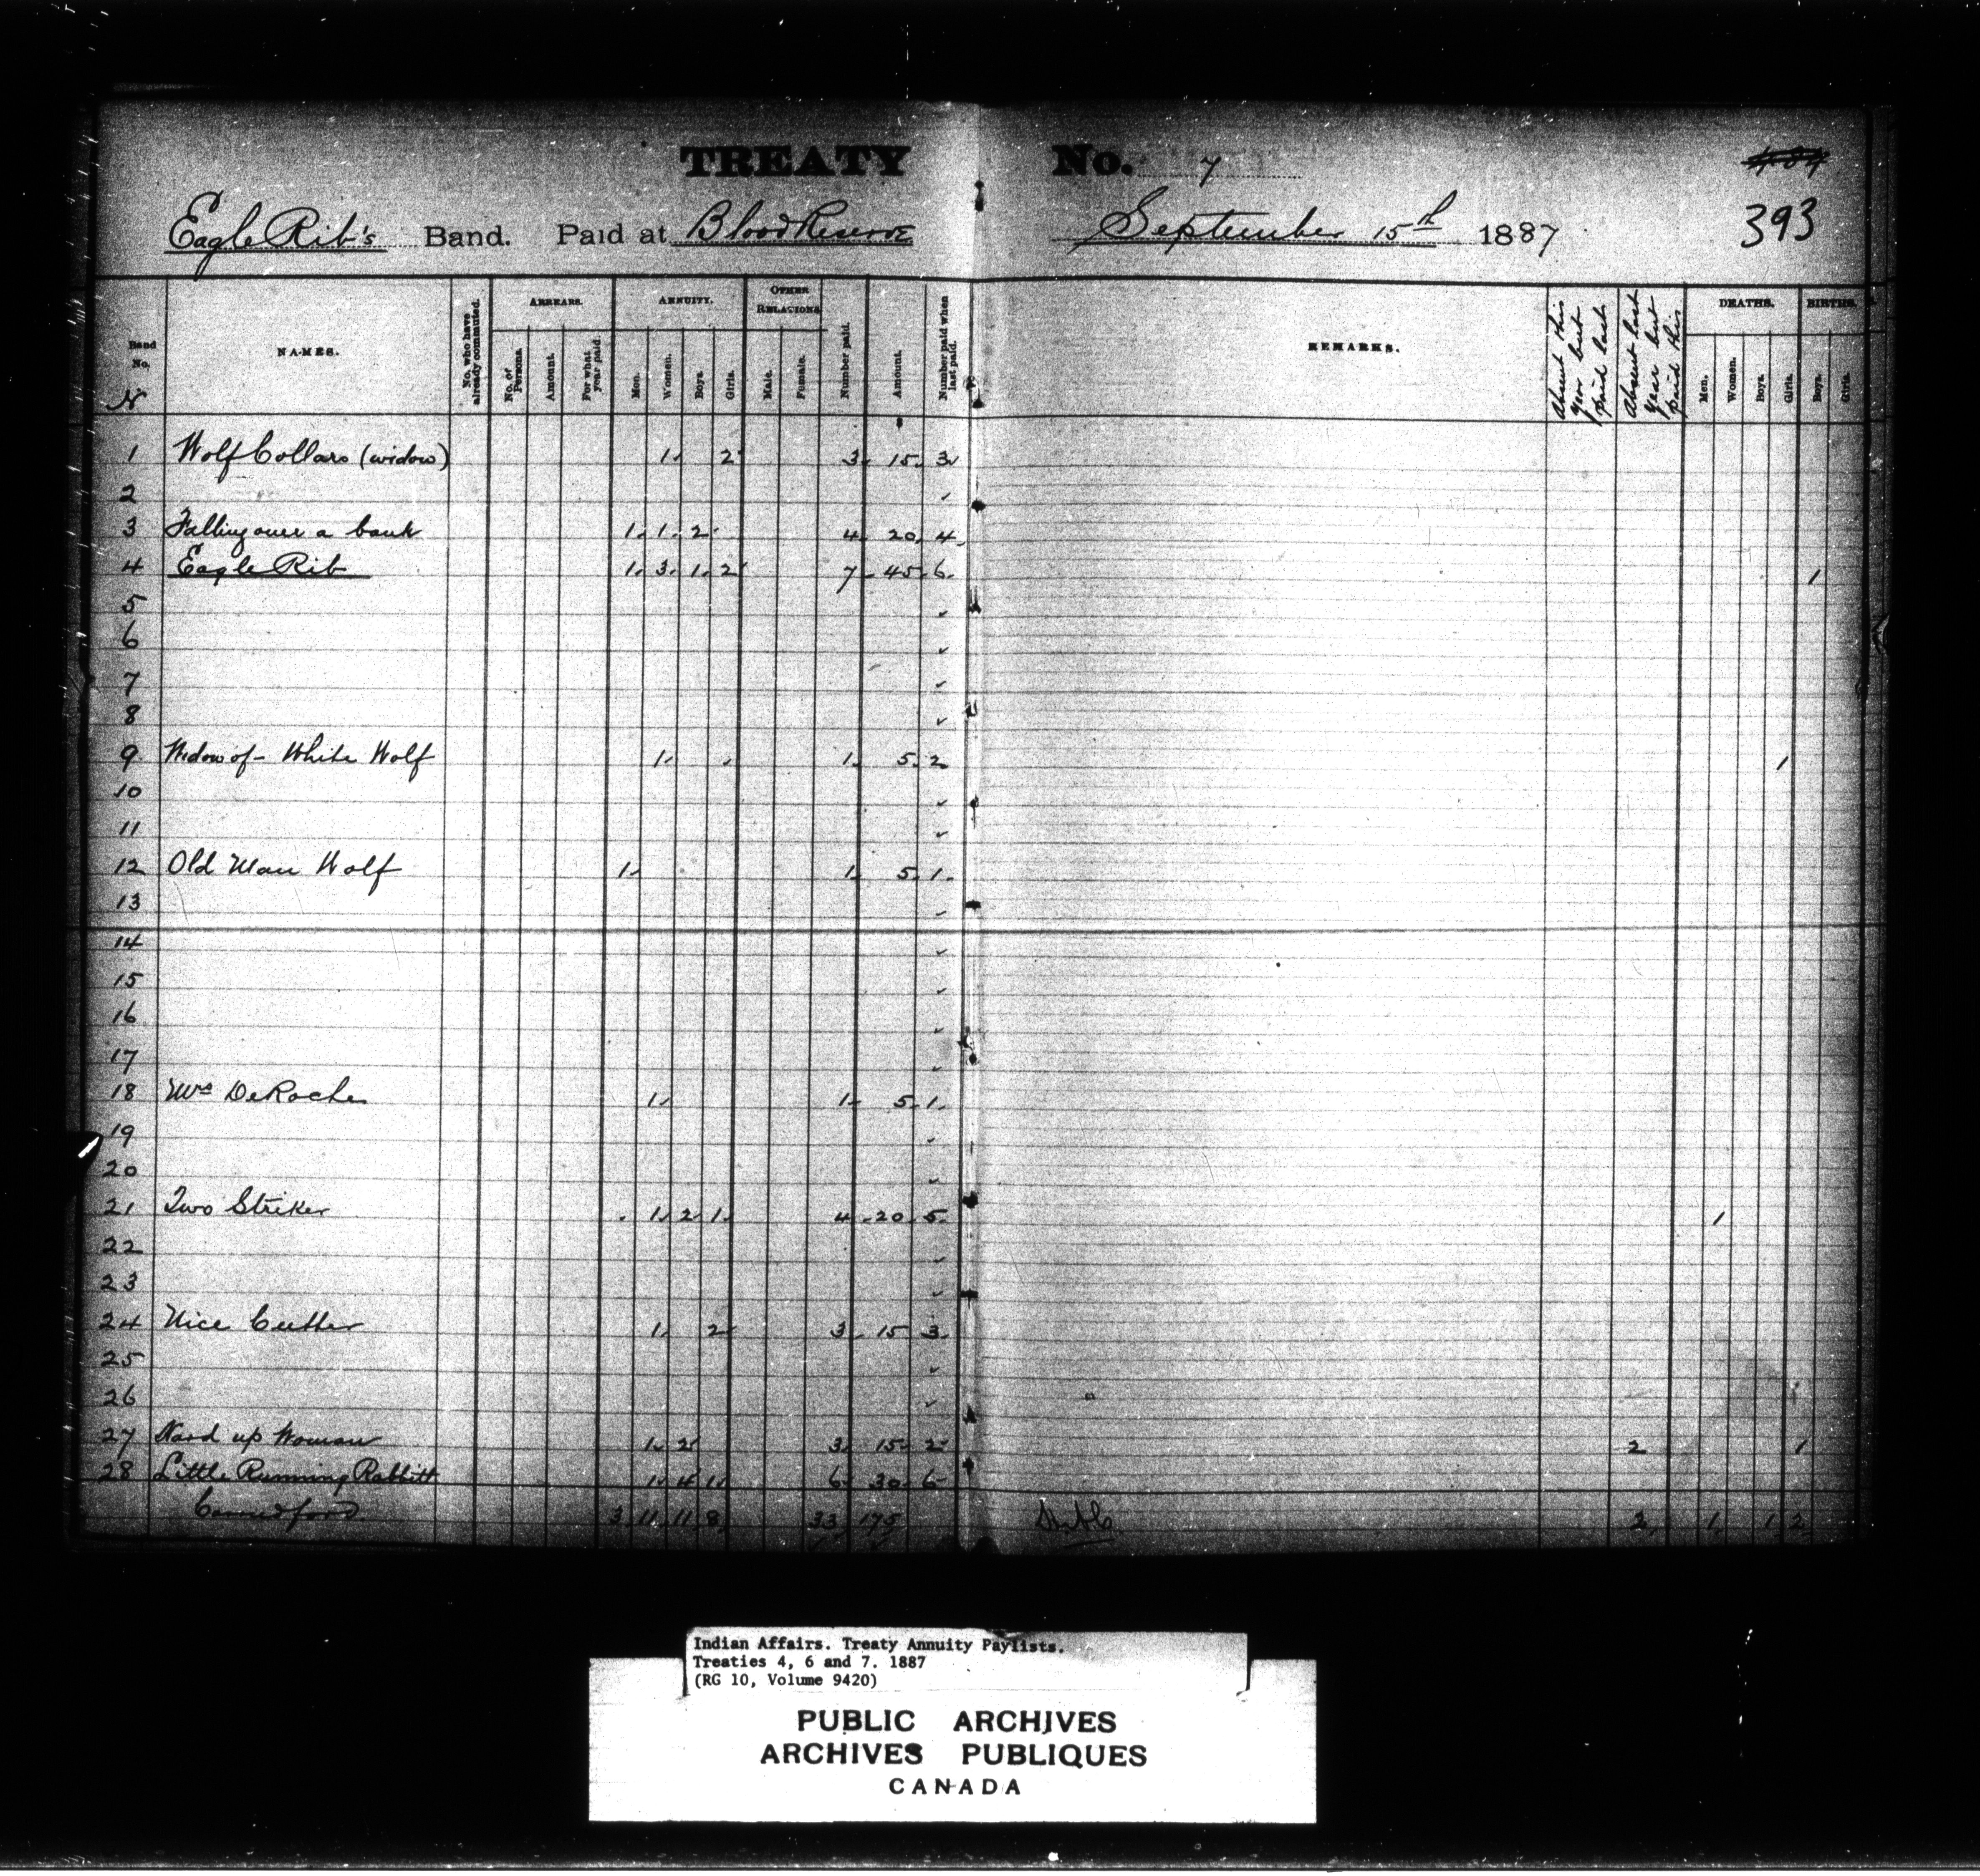 TREATY No. 7
Eagle Rib's Band. Paid at Blood Reserve September 15th 1887 393
Band No. NAMES. No. who have already commuted. ARREARS. No. of Persons. Amount. For what year paid. ANNUITY. Men. Women. Boys. Girls. OTHER RELATIONS Male. Female. Number paid. Amount. Number paid when last paid. REMARKS. Absent this year but paid last Absent last year but paid this DEATHS. Men. Women. Boys. Girls. BIRTHS. Boys. Girls.
1 Wolf Collars (widow) 1 2 3 15 3
2
3 Falling over a bank 1 1 2 4 20 4
4 Eagle Rib 1 3 1 2 7 45 6 1
5
6
7
8
9 Widow of - White Wolf 1 1 5 2 1
10
11
12 Old Man Wolf 1 1 5 1
13
14
15
16
17
18 Mrs DeRoche 1 1 5 1
19
20
21 Two Striker 1 2 1 4 20 5 1
22
23
24 Nice Cutter 1 2 3 15 3
25
26
27 Hard up Woman 1 2 3 15 2 2 1
28 Little Running Rabbitt 1 4 1 6 30 6
Carried ford 3 11 11 8 33 175 2 1 1 2
Indian Affairs. Treaty Annuity Paylists.
Treaties 4, 6 and 7. 1887
(RG 10, Volume 9420)
PUBLIC ARCHIVES
ARCHIVES PUBLIQUES
CANADA